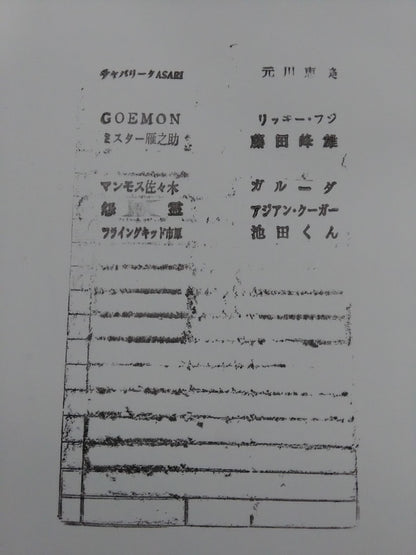 チャパリータASARI 元川恵美
GOEMON リッキー・フジ
ミスター雁之助 藤田峰雄
マンモス佐々木 ガルーダ
怨霊 アジアン・クーガー
フライングキッド市原 池田くん